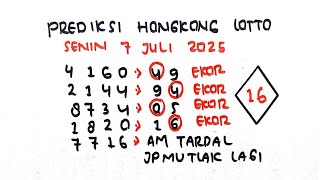 PREDIKSI HONGKONG LOTTO
SENIN 7 JULI 2025
4 1 6 0 > 4 9 EKOR
2 1 4 4 > 9 4 EKOR
8 7 3 4 > 0 5 EKOR
1 8 2 0 > 1 6 EKOR
7 7 1 6 > AM TARDAL
JP MUTLAK LAGI
16